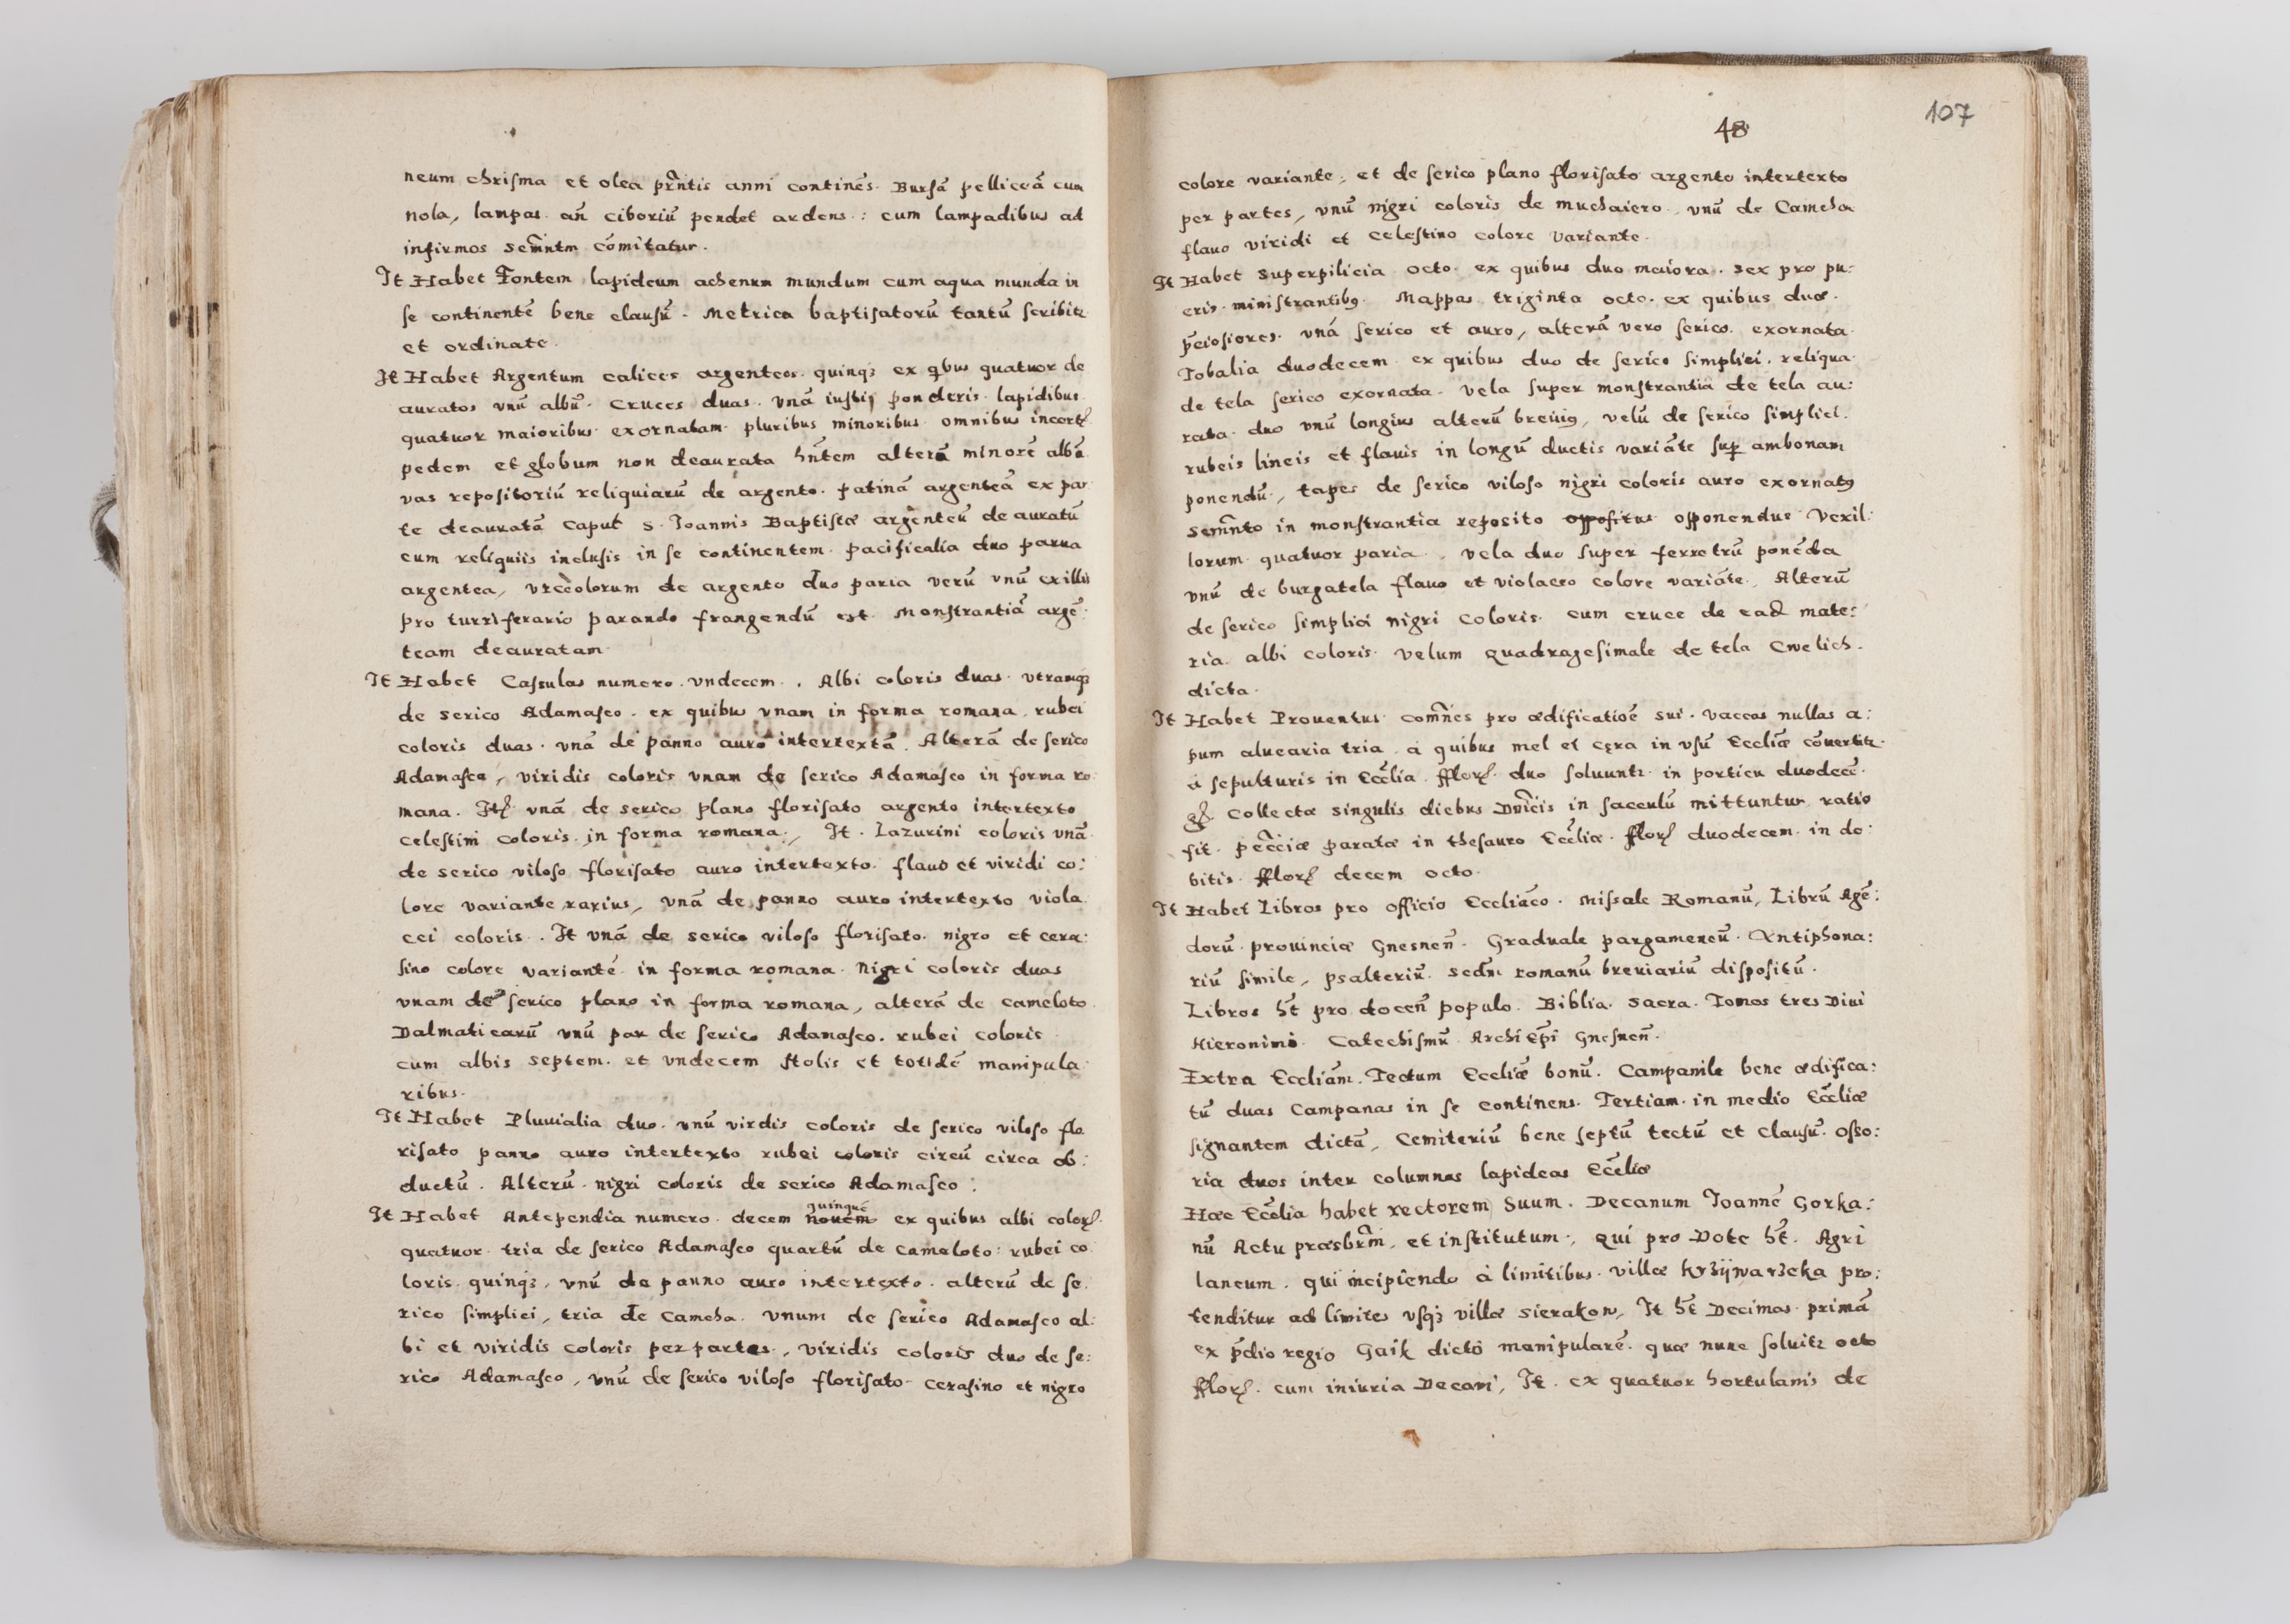 neum chrisma et olea pr̃ntis anni continẽs. Bursã pelliceã cum
nola, lampas añ ciboriũ pendet ardens : cum lampadibus ad
infirmos Semñtm cõmitatur.
It Habet Fontem lapideum achenum mundum cum aqua munda in
se continentẽ bene clausũ. Metrica baptisatorũ tantũ scribitr
et ordinate.
It Habet Argentum calices argenteos quinq3 ex qbus quatuor de
auratos vnũ albũ. Cruces duas. vnã iusti ponderis. lapidibus
quatuor maioribus exornatam pluribus minoribus omnibus incert
pedem et globum non deaurata hñtem alterã minorẽ albã
vas repositoriũ reliquiarũ de argento. patinã argenteã ex par
te deauratã Caput S. Joannis Baptistæ argenteũ de auratũ
cum reliquiis inclusis in se continentem. pacificalia duo parua
argentea, vrceolorum de argento duo paria verũ vnũ ex illis
pro turriferario parando frangendũ est. Monstrantiã argẽ:
team deauratam
It Habet Cassulas numero. vndecem. Albi coloris duas. vtramq3
de serico Adamasco. ex quibus vnam in forma romana, rubei
coloris duas. vnã de panno auro intertextã. Alterã de serico
Adamasco, viridis coloris vnam de serico Adamasco in forma ro
mana. It vnã de serico plano florisato argento intertexto
celestini coloris in forma romana., It. Lazurini coloris vnã
de serico viloso florisato auro intertexto. flauo et viridi co:
lore variante rarius, vnã de panno auro intertexto viola
cei coloris. It vnã de serico viloso florisato. nigro et cera:
sino colore variantẽ in forma romana. Nigri coloris duas
vnam de serico plano in forma romana, alterã de cameloto
Dalmaticarũ vnũ par de serico Adamasco. rubei coloris
cum albis septem. et vndecem stolis et totidẽ manipula
ribus.
It Habet Pluuialia duo. vnũ virdis coloris de serico viloso flo
risato panno auro intertexto rubei coloris circũ circa ob:
ductũ. Alterũ. nigri coloris de serico Adamasco:
It Habet Antependia numero. decem nouem quinque ex quibus albi color
quatuor. tria de serico Adamasco quartũ de cameloto: rubei co
loris. quinq3. vnũ de panno auro intertexto. alterũ de se
rico simplici, tria de Camcha. vnum de serico Adamasco al:
bi et viridis coloris per partes., viridis coloris duo de se:
rico Adamasco, vnũ de serico viloso florisato. cerasino et nigro
107
48
colore variante, et de serico plano florisato argento intertexto
per partes, vnũ nigri coloris de muchaiero, vnũ de Camcha
flauo viridi et celestino colore variante.
It Habet Superpilicia octo. ex quibus duo maiora. sex pro pu:
eris. ministrantib9. Mappas triginta octo. ex quibus duæ.
p̃ciosiores. vnã serico et auro, alterã vero serico. exornata.
Tobalia duodecem ex quibus duo de serico simplici. reliqua.
de tela serico exornata. vela super monstrantia de tela au:
rata duo vnũ longius alterũ breui9, velũ de serico simplici.
rubeis lineis et flauis in longũ ductis variãte sup ambonam
ponendũ, tapes de serico viloso nigri coloris auro exornat9
Semñto in monstrantia reposito oppositus opponendus. Vexil:
lorum quatuor paria, vela duo super ferretrũ ponẽda
vnũ de burgatela flauo et violaceo colore variãte, Alterũ
de serico simplici nigri coloris. cum cruce de ead mate:
ria. albi coloris. velum quadragesimale de tela Cwelich.
dicta.
It Habet Prouentus. com̃nes pro ædificatiõe sui. vaccas nullas a:
pum aluearia tria. a quibus mel et cera in vsũ Eccliæ cõuertitr.
a sepulturis in Ecclia. fflor duo soluuntr. in porticu duodecẽ.
g Collectæ singulis diebus Dñicis in sacculũ mittuntur ratio
fit. pec̃ciæ paratæ in thesauro Eccliæ. fflor duodecem. in de:
bitis. fflor decem octo.
It Habet Libros pro officio Eccliãco. Missale Romanũ, Librũ Agẽ:
dorũ. prouinciæ Gnesneñ. Graduale pargameneũ. Antiphona:
riũ simile, psalteriũ. secdm romanũ breuiariũ dispositũ.
Libros ht pro doceñ populo. Biblia. sacra. Tomos tres Diui
Hieronimi. Catechismũ Archiep̃i Gnesneñ.
Extra Eccliãm. Tectum Eccliæ bonũ. Campanile bene ædifica:
tũ duas Campanas in se continens. Tertiam. in medio Eccliæ
signantem dictã, Cemiteriũ bene septũ tectũ et clausũ. osso:
ria duos inter columnas lapideas Eccliæ
Hæc Ecclia habet rectorem Suum. Decanum Joannẽ Gorka:
nũ Actu præsbrm̃, et institutum, qui pro Dote ht. Agri
laneum. qui incipiendo a limitibus. villæ krzijwarzeka pro:
tenditur ad limites vsq3 villæ Sierakow, It ht Decimas. primã
ex p̃dio regio Gaik dicto manipularẽ. quæ nunc soluitr octo
fflor. cum iniuria Decani, It. ex quatuor hortulanis de